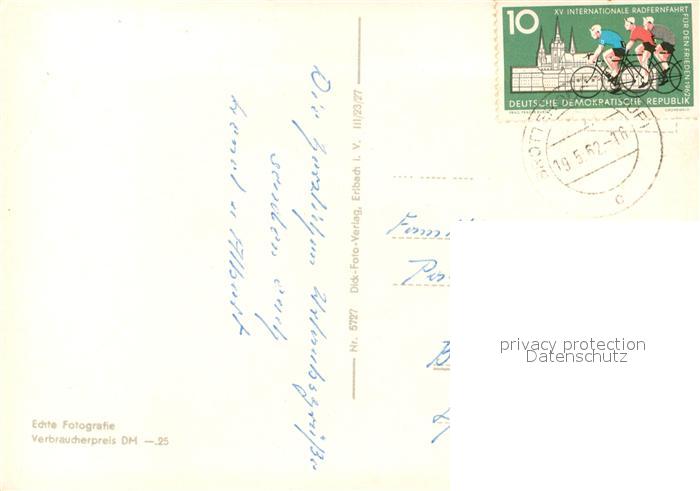 10
XV INTERNATIONALE RADFERNFAHRT
FÜR DEN FRIEDEN 1962
DEUTSCHE DEMOKRATISCHE REPUBLIK
19.5.62-16
c
Die herzlichsten Urlaubsgrüße
senden euch
u. Albert
Nr. 5727 Dick-Foto-Verlag, Erlbach i. V. III/23/27
Echte Fotografie
Verbraucherpreis DM —.25
privacy protection
Datenschutz